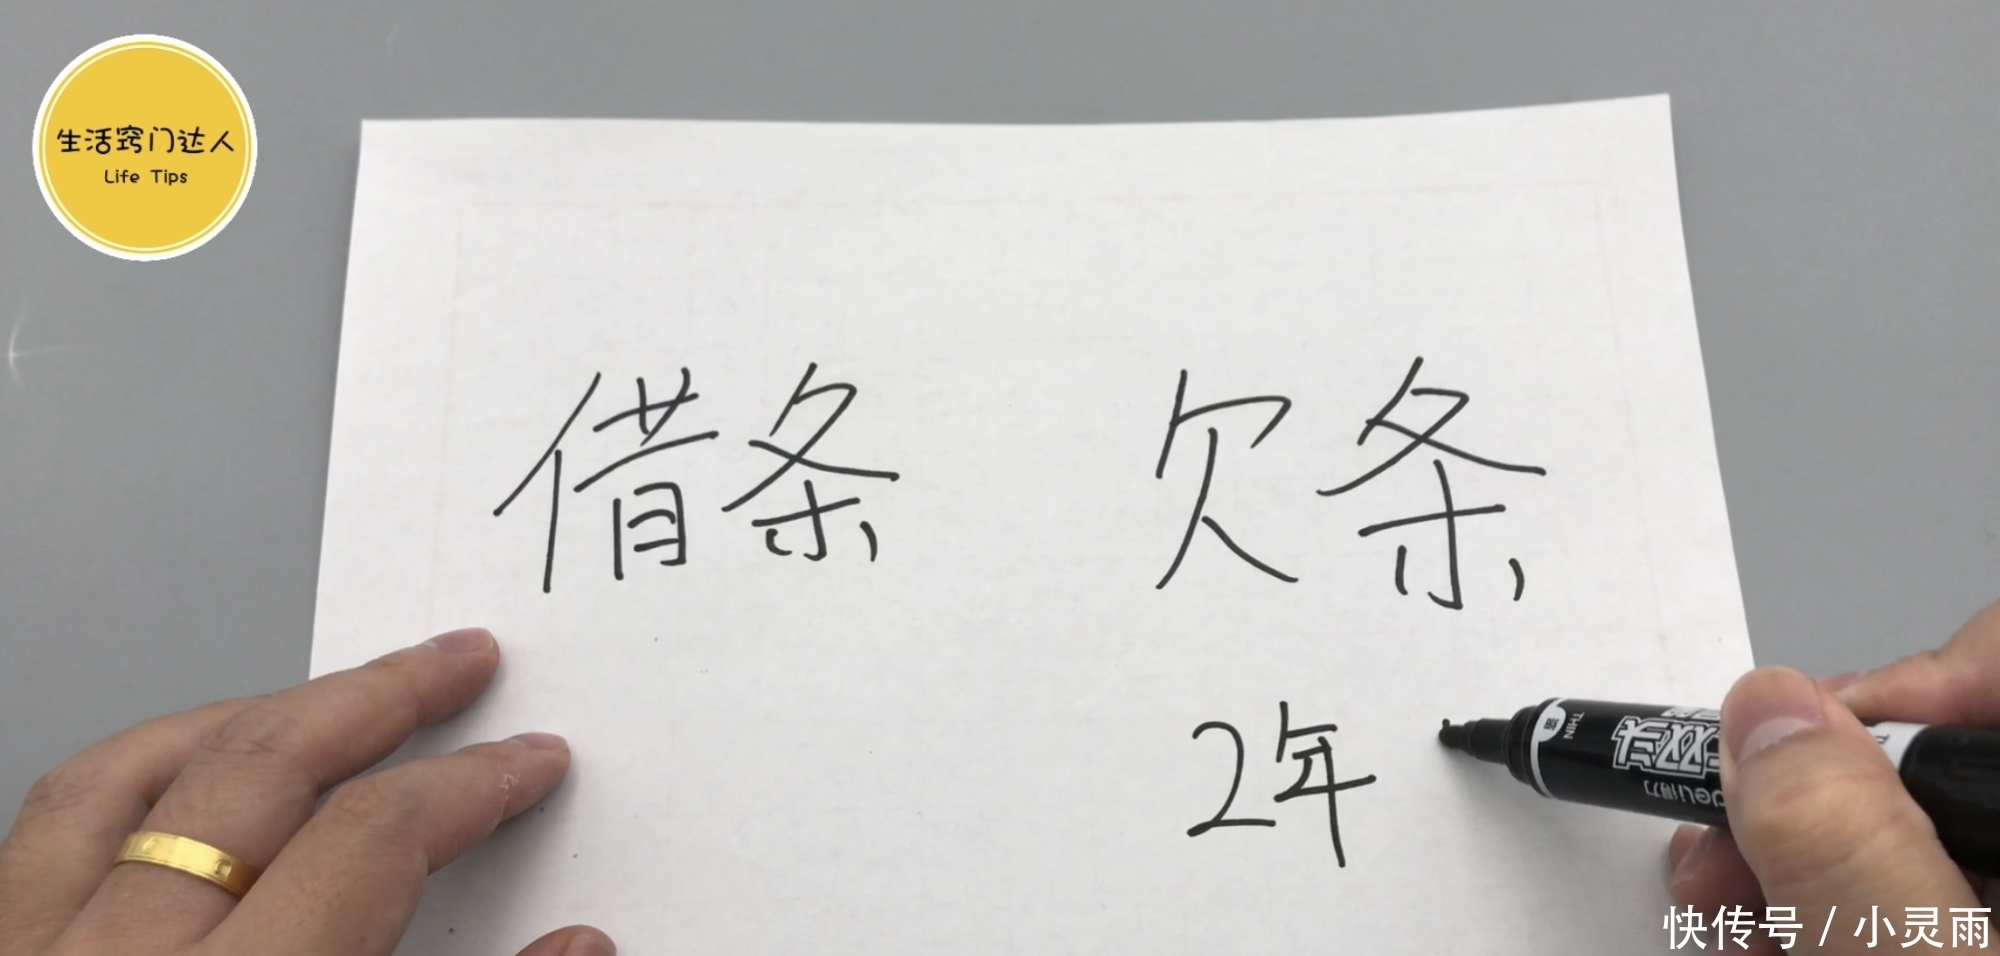 生活窍门达人
Life Tips
借条 欠条
2年
THIN
双头
deli得力
快传号 / 小灵雨